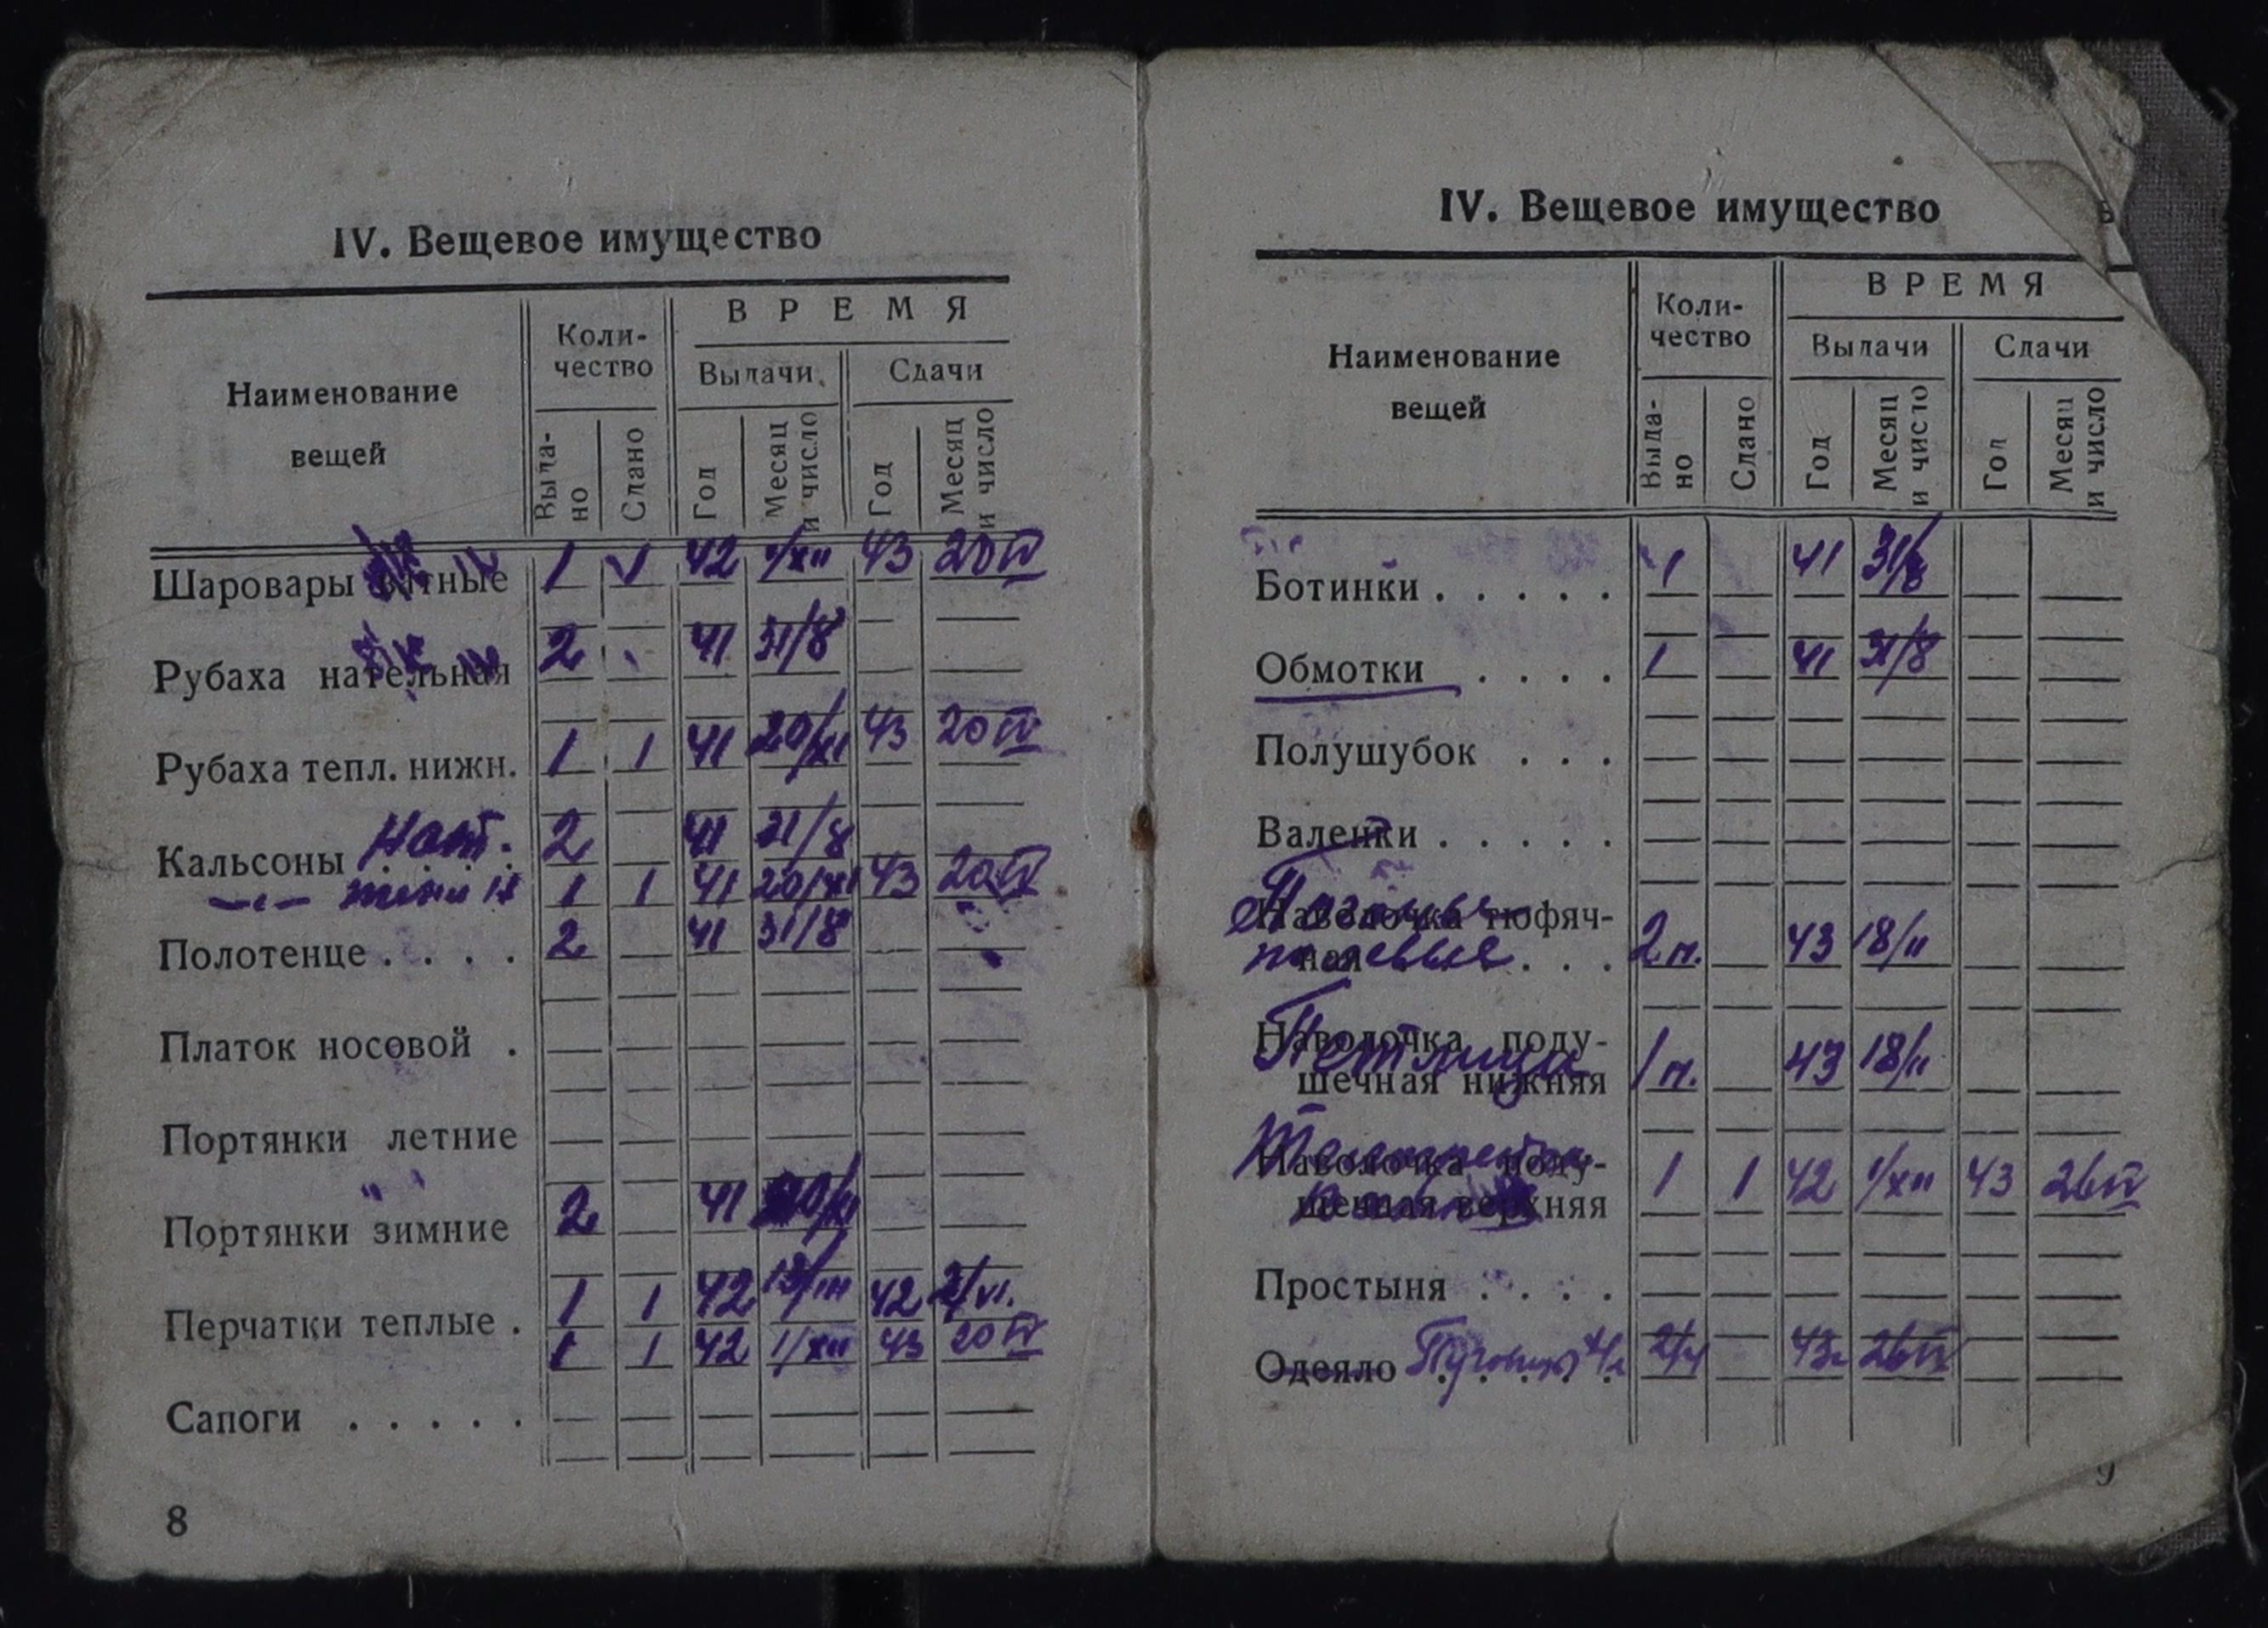 IV. Вещевое имущество
Наименование вещей
Коли-
чество
ВРЕМЯ
Выдачи
Сдачи
Выда-
но
Сдано
Год
Месяц
и число
Год
Месяц
и число
Шаровары ватные 1 √ 42 1/XII 43 20 IV
Рубаха нательная 2 41 31/8
Рубаха тепл. нижн. 1 1 41 20/XI 43 20 IV
Кальсоны Нат. 2 41 31/8
1 1 41 20/XI 43 20 IV
Полотенце . . . . 2 41 31/8
Платок носовой .
Портянки летние
Портянки зимние 2 41
Перчатки теплые . 1 1 42 13/III 42 2/VI.
1 1 42 1/XII 43 20 IV
Сапоги . . . . .
8
IV. Вещевое имущество
Наименование
вещей
Коли-
чество
ВРЕМЯ
Выдачи
Сдачи
Выда-
но
Сдано
Год
Месяц
и число
Год
Месяц
и число
Ботинки . . . . . 1 41 31/8
Обмотки . . . . 1 41 31/8
Полушубок . . .
Валенки . . . . .
Наволочка тюфяч-
Погоны
ная . . .
полевые 2 п. 43 18/II
Наволочка поду-
Петлицы
шечная нижняя 1 п. 43 18/II
Наволочка поду-
Телогрейка
шечная верхняя 1 1 42 1/XII 43 26 IV
Простыня . . . .
Одеяло Пуговиц 43 26 IV
9